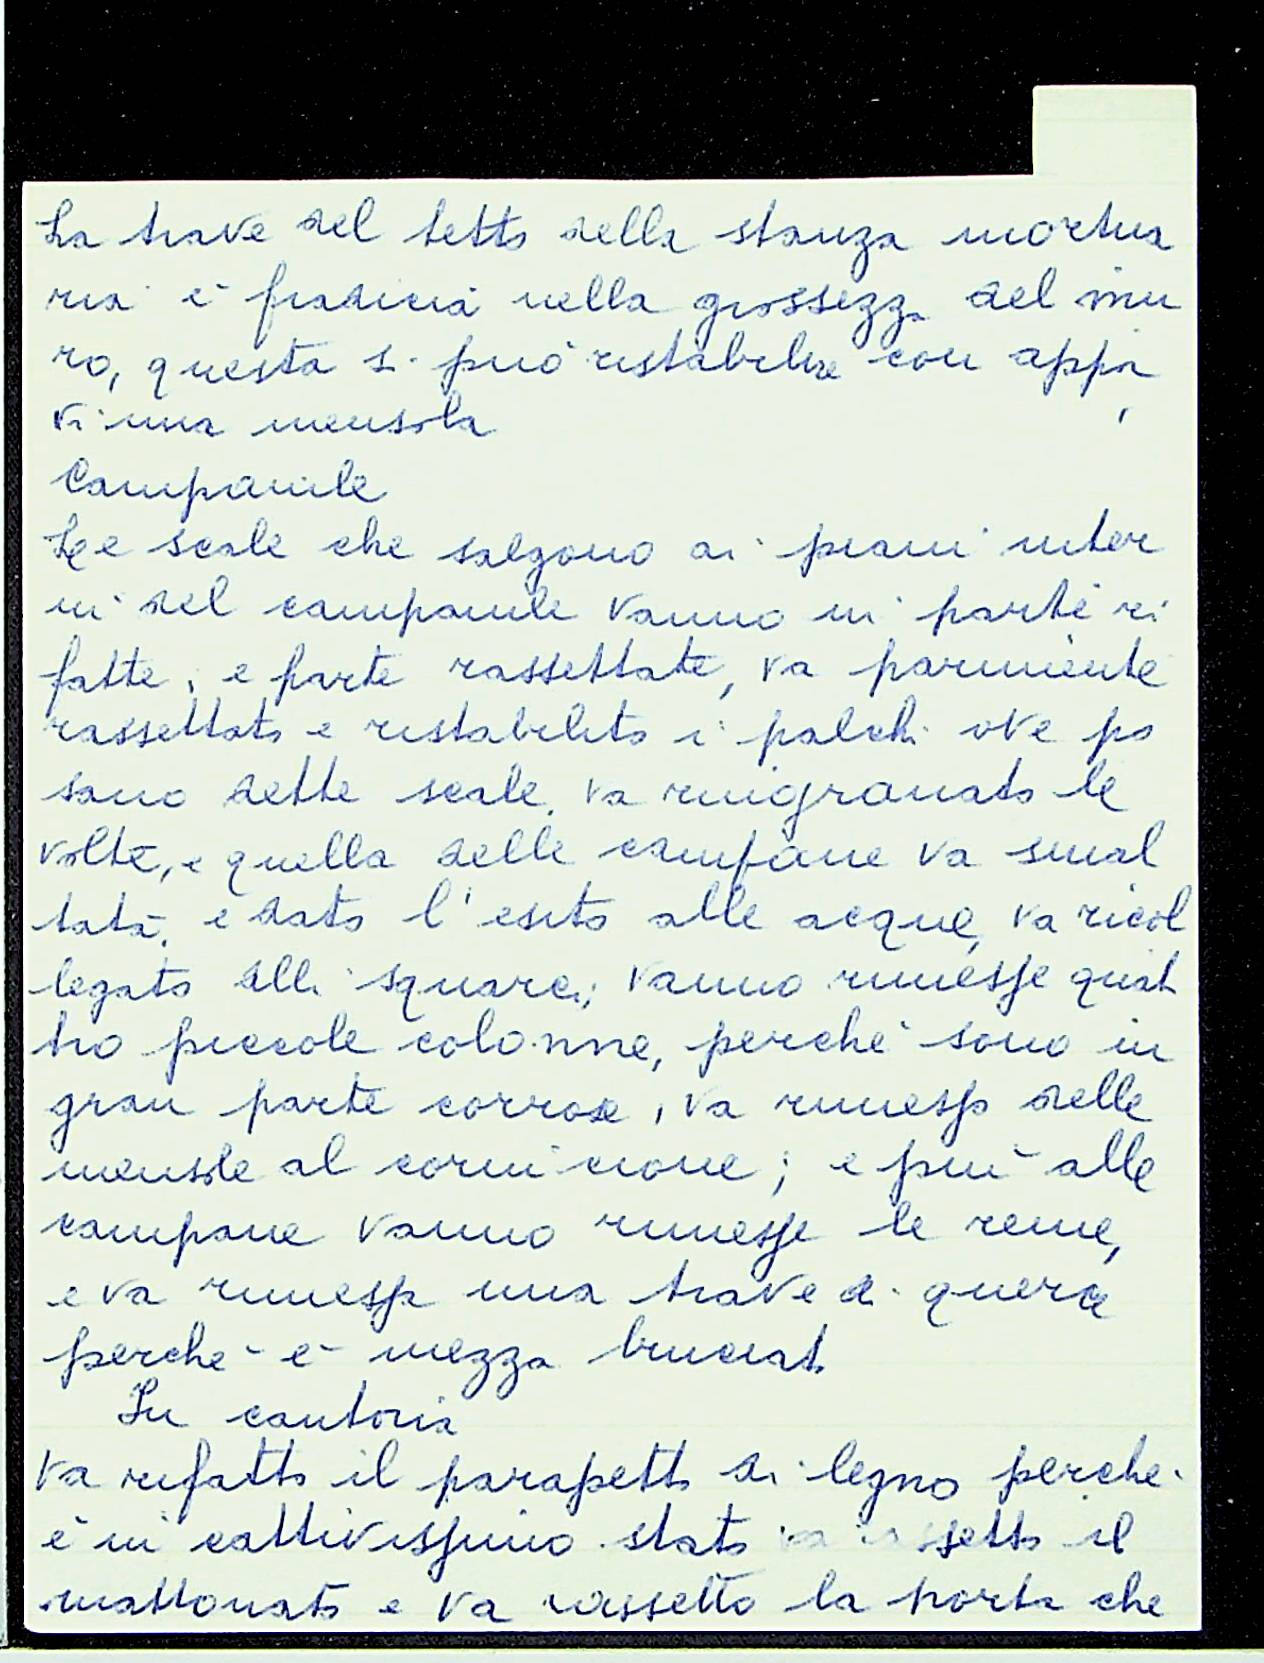 La trave del tetto della stanza mortua
ria è fradicia nella grossezza del mu
ro, questa si può ristabilire con appor
vi una mensola
Campanile
Le scale che salgono ai piani inter
ni del campanile vanno in parte ri
fatte, e parte rassettate, va parimente
rassettato e ristabilito i palchi ove po
sano dette scale, va rinigranato le
volte, e quella delle campane va smal
tata, e dato l'esito alle acque, va ricol
legato alli squarci; vanno rimesse quat
tro piccole colonne, perchè sono in
gran parte corrose, va rimesso delle
mensole al cornicione; e più alle
campane vanno rimesse le
e va rimessa una trave di querce
perchè è mezza bruciata
In cantoria
Va rifatto il parapetto di legno perchè
è in cattivissimo stato va il
mattonato e va rassetto la porta che